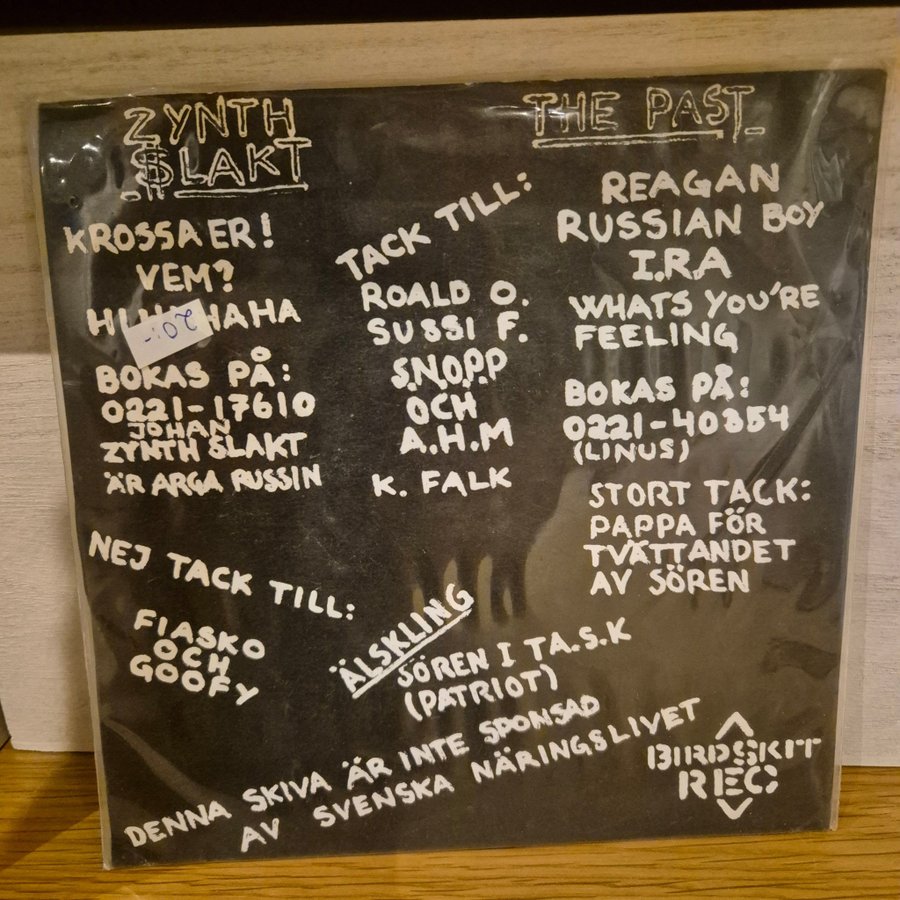 ZYNTH
$LAKT
KROSSA ER!
VEM?
HAHA
BOKAS PÅ:
0221-17610
JOHAN
ZYNTH SLAKT
ÄR ARGA RUSSIN
NEJ TACK TILL:
FIASKO
OCH
GOOFY
TACK TILL:
ROALD O.
SUSSI F.
S.N.O.P.P
OCH
A.H.M
K. FALK
ÄLSKLING
SÖREN I T.A.S.K
(PATRIOT)
THE PAST
REAGAN
RUSSIAN BOY
I.RA
WHATS YOU'RE
FEELING
BOKAS PÅ:
0221-40354
(LINUS)
STORT TACK:
PAPPA FÖR
TVÄTTANDET
AV SÖREN
DENNA SKIVA ÄR INTE SPONSAD
AV SVENSKA NÄRINGSLIVET
BIRDSKIT
REC
20:-